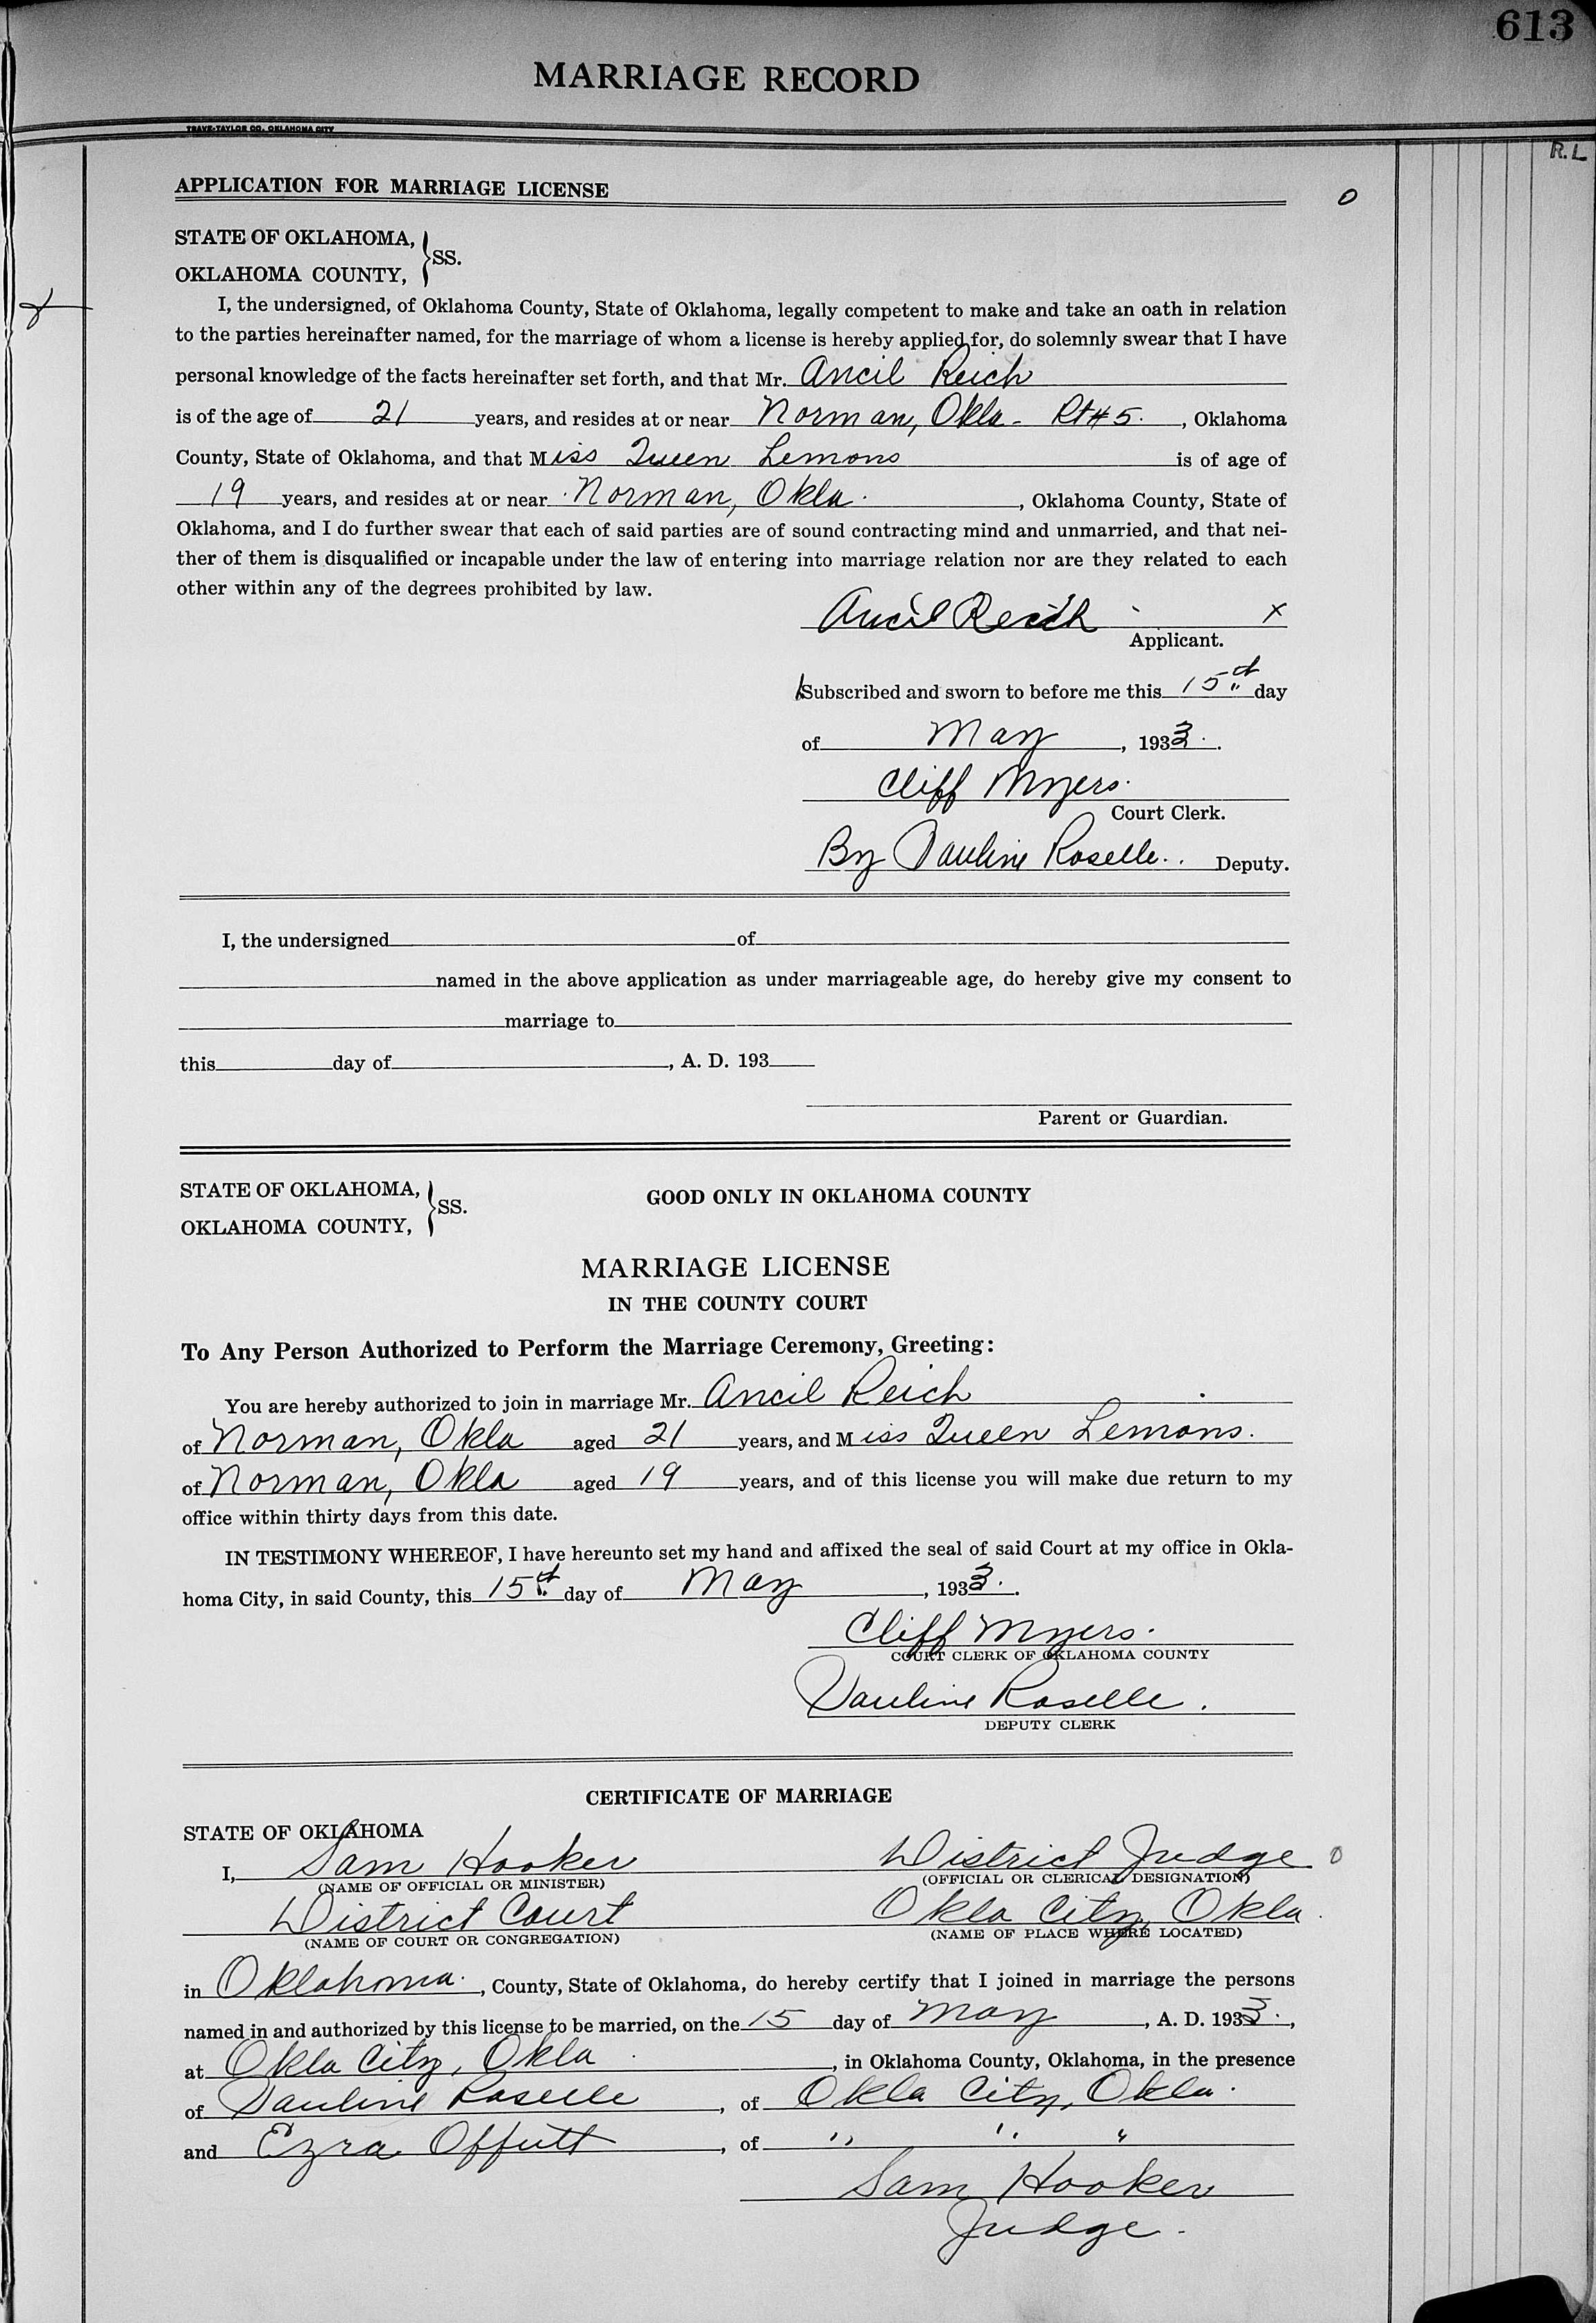 613
MARRIAGE RECORD
TRAVE-TAYLOR CO. OKLAHOMA CITY
R.L
APPLICATION FOR MARRIAGE LICENSE
0
STATE OF OKLAHOMA,
OKLAHOMA COUNTY, } SS.
I, the undersigned, of Oklahoma County, State of Oklahoma, legally competent to make and take an oath in relation
to the parties hereinafter named, for the marriage of whom a license is hereby applied for, do solemnly swear that I have
personal knowledge of the facts hereinafter set forth, and that Mr. Ancil Reich
is of the age of 21 years, and resides at or near Norman, Okla - Rt # 5. , Oklahoma
County, State of Oklahoma, and that Miss Queen Lemons is of age of
19 years, and resides at or near Norman, Okla. , Oklahoma County, State of
Oklahoma, and I do further swear that each of said parties are of sound contracting mind and unmarried, and that nei-
ther of them is disqualified or incapable under the law of entering into marriage relation nor are they related to each
other within any of the degrees prohibited by law.
Ancil Reich x
Applicant.
Subscribed and sworn to before me this 15th day
of May , 1933.
Cliff Myers.
Court Clerk.
By Pauline Roselle.. Deputy.
I, the undersigned of
named in the above application as under marriageable age, do hereby give my consent to
marriage to
this day of , A. D. 193
Parent or Guardian.
STATE OF OKLAHOMA,
OKLAHOMA COUNTY, } SS.
GOOD ONLY IN OKLAHOMA COUNTY
MARRIAGE LICENSE
IN THE COUNTY COURT
To Any Person Authorized to Perform the Marriage Ceremony, Greeting:
You are hereby authorized to join in marriage Mr. Ancil Reich
of Norman, Okla aged 21 years, and Miss Queen Lemons.
of Norman, Okla aged 19 years, and of this license you will make due return to my
office within thirty days from this date.
IN TESTIMONY WHEREOF, I have hereunto set my hand and affixed the seal of said Court at my office in Okla-
homa City, in said County, this 15th day of May , 1933.
Cliff Myers.
COURT CLERK OF OKLAHOMA COUNTY
Pauline Roselle.
DEPUTY CLERK
CERTIFICATE OF MARRIAGE
STATE OF OKLAHOMA
I, Sam Hooker District Judge 0
(NAME OF OFFICIAL OR MINISTER) (OFFICIAL OR CLERICAL DESIGNATION)
District Court Okla City, Okla.
(NAME OF COURT OR CONGREGATION) (NAME OF PLACE WHERE LOCATED)
in Oklahoma. , County, State of Oklahoma, do hereby certify that I joined in marriage the persons
named in and authorized by this license to be married, on the 15 day of May , A. D. 1933. ,
at Okla City, Okla. , in Oklahoma County, Oklahoma, in the presence
of Pauline Roselle , of Okla City, Okla.
and Ezra Offutt , of " " "
Sam Hooker
Judge.